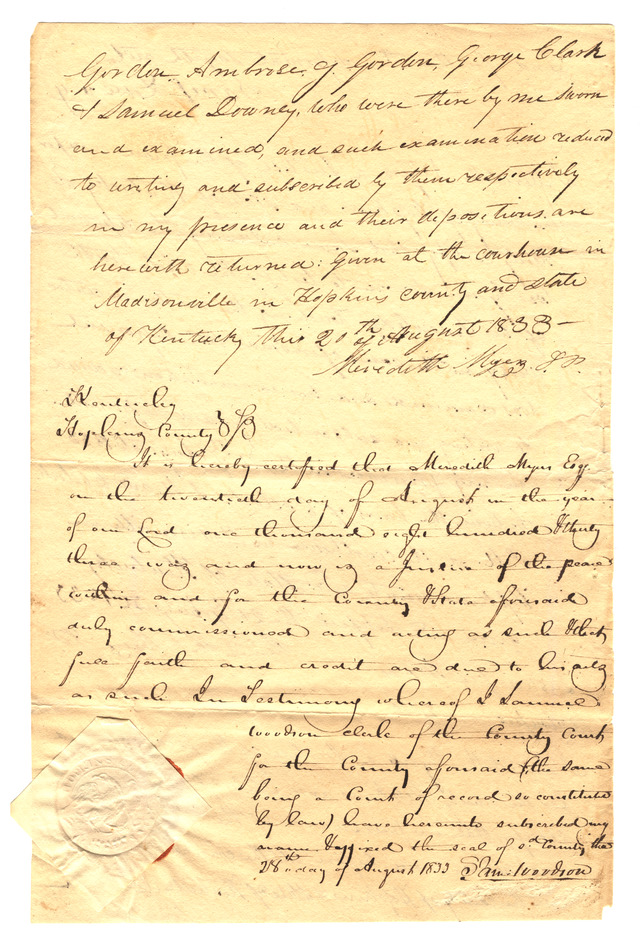 Gordon, Ambrose, G. Gordon, George Clark
& Samuel Downey, who were there by me sworn
and examined, and such examination reduced
to writing and subscribed by them respectively
in my presence and their depositions are
herewith returned: Given at the courhouse in
Madisonville in Hopkins county and state
of Kentucky this 20th of August 1833—
Meredith Myers J.P.
Kentucky
Hopkins County
It is hereby certified that Meredith Myers Esq.
on the twentieth day of August in the year
of our Lord one thousand eight hundred & thirty
three was and now is a Justice of the peace
within and for the County & State aforesaid
duly commissioned and acting as such & that
full faith and credit are due to his acts
as such In Testimony whereof I Samuel
Woodson clerk of the County Court
for the County aforesaid (the same
being a Court of record so constituted
by law) have hereunto subscribed my
name & affixed the seal of sd. County this
28th day of August 1833 Sam. Woodson